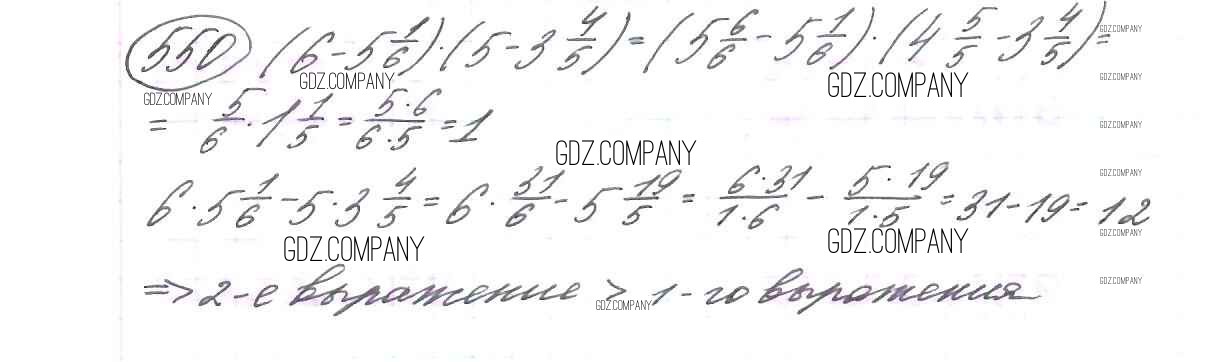 550 (6 - 5 1/6) · (5 - 3 4/5) = (5 6/6 - 5 1/6) · (4 5/5 - 3 4/5) =
GDZ.COMPANY
GDZ.COMPANY GDZ.COMPANY GDZ.COMPANY GDZ.COMPANY
= 5/6 · 1 1/5 = 5·6/6·5 = 1
GDZ.COMPANY
GDZ.COMPANY
GDZ.COMPANY
6 · 5 1/6 - 5 · 3 4/5 = 6 · 31/6 - 5 19/5 = 6·31/1·6 - 5·19/1·5 = 31 - 19 = 12
GDZ.COMPANY GDZ.COMPANY GDZ.COMPANY
=> 2-е выражение > 1-го выражения
GDZ.COMPANY GDZ.COMPANY